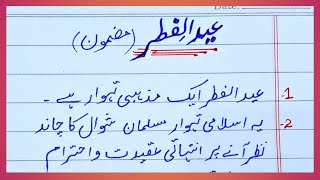 Date:
عید الفطر (مضمون)
1- عید الفطر ایک مذہبی تہوار ہے۔
2- یہ اسلامی تہوار مسلمان شوال کا چاند
نظر آنے پر انتہائی عقیدت و احترام